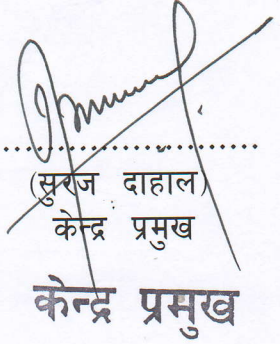 (सुरज दाहाल)
केन्द्र प्रमुख
केन्द्र प्रमुख